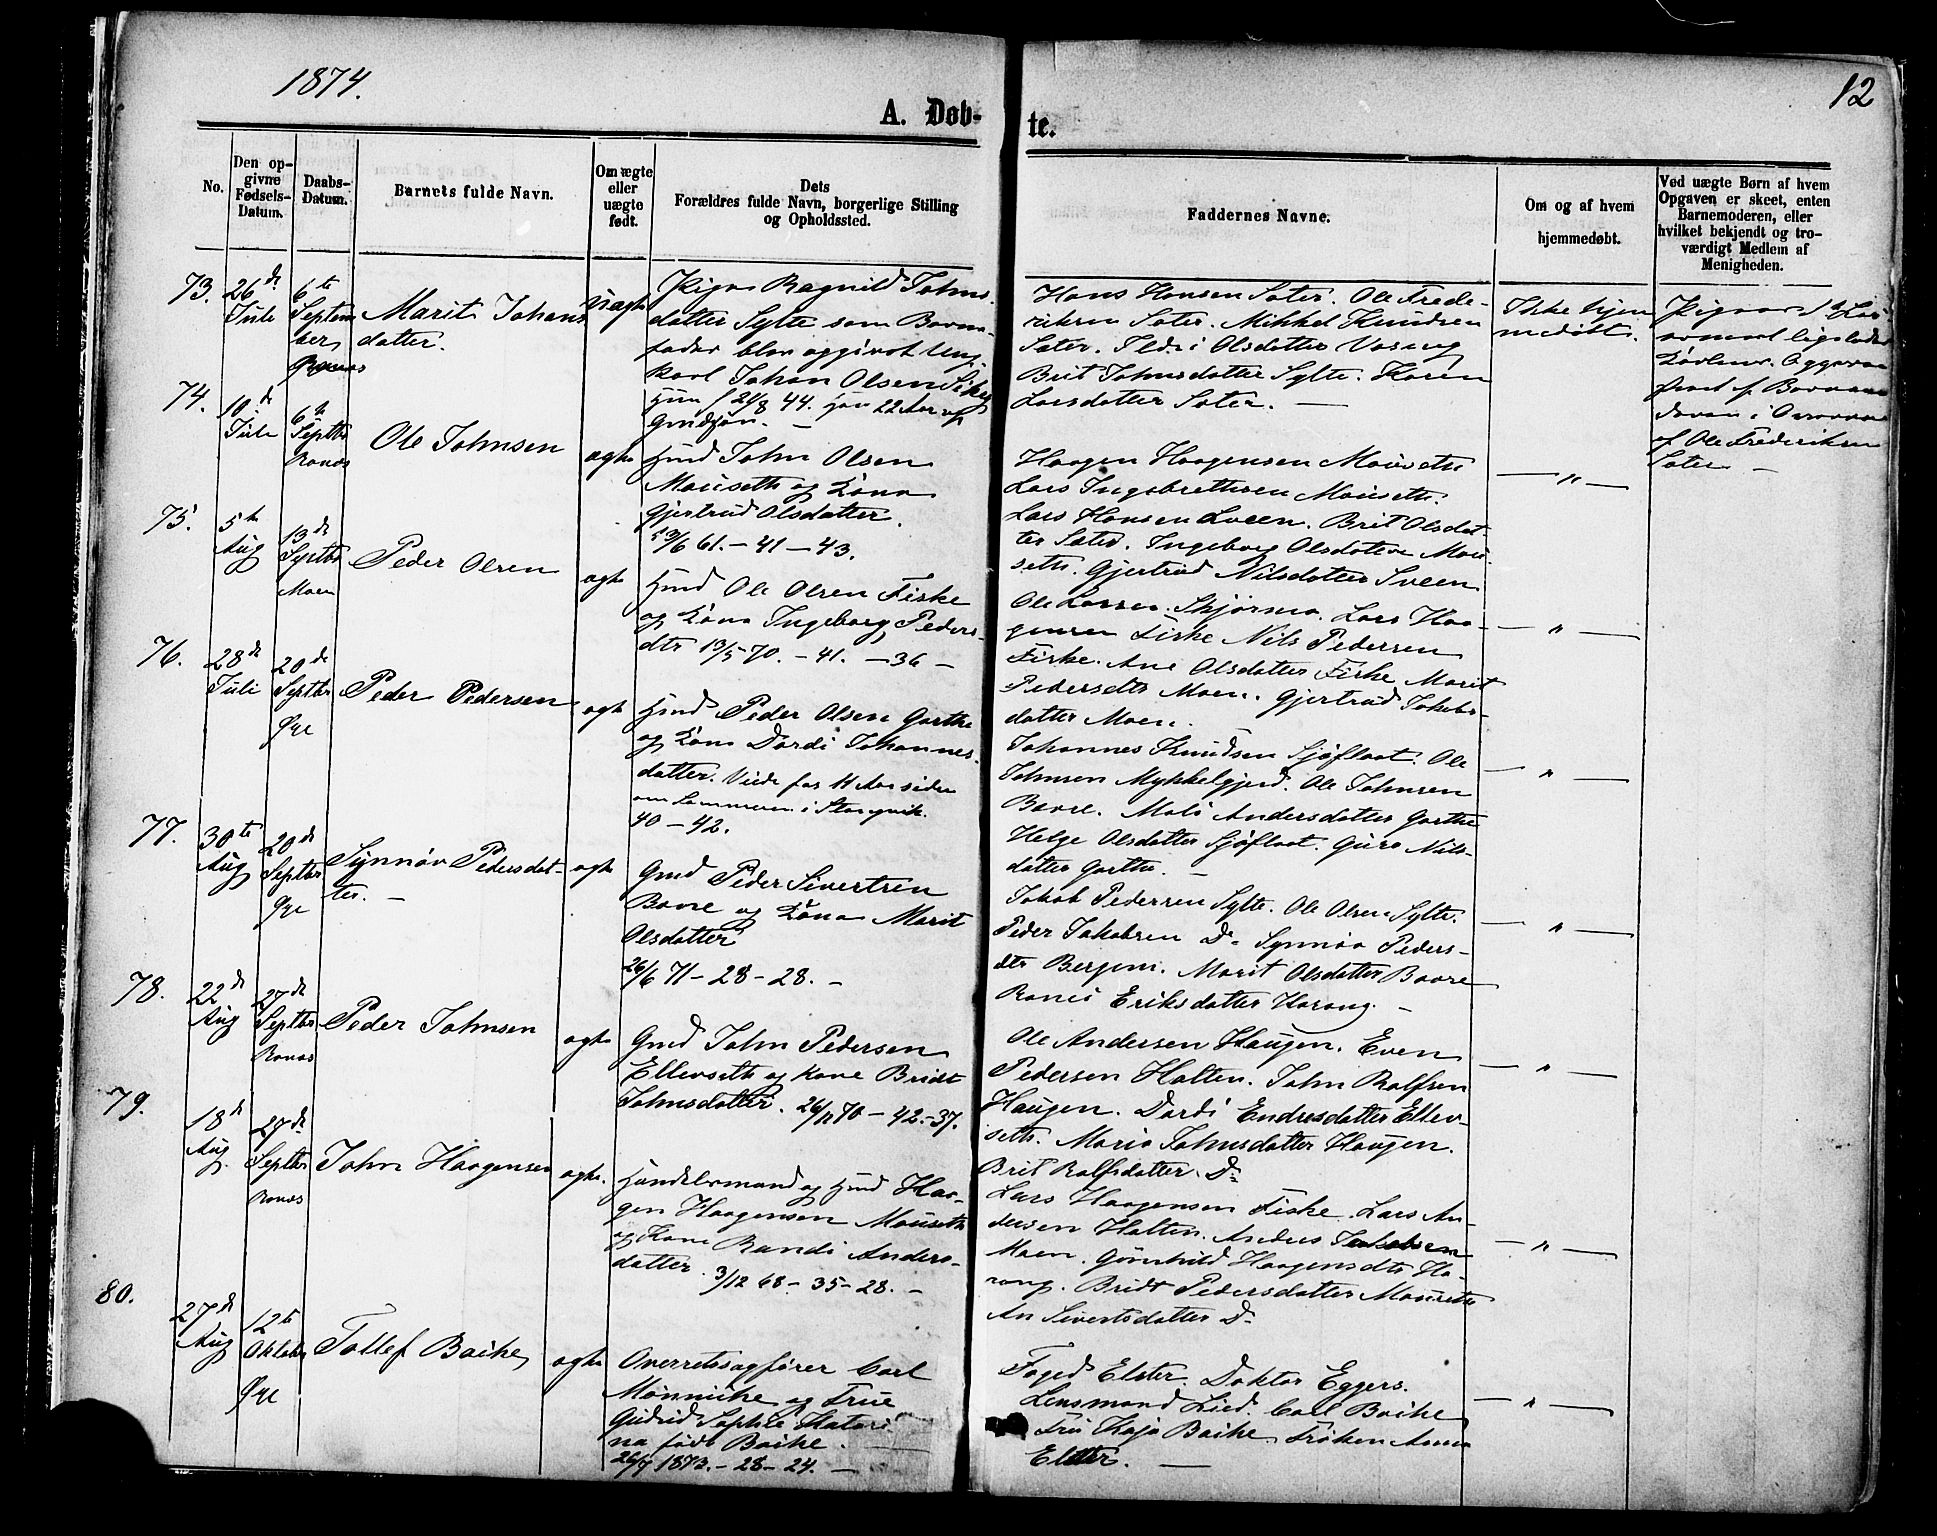 1874.
12
A. Døb-
te.
No.
Den op-
givne
Fødsels-
Datum.
Daabs-
Datum.
Barnets fulde Navn.
Om ægte
eller
uægte
født.
Dets
Forældres fulde Navn, borgerlige Stilling
og Opholdssted.
Faddernes Navne.
Om og af hvem
hjemmedøbt.
Ved uægte Børn af hvem
Opgaven er skeet, enten
Barnemoderen, eller
hvilket bekjendt og tro-
værdigt Medlem af
Menigheden.
73.
26de
Juli
6te
Septem
ber
Ranæs
Marit Johans
datter.
Uægte
Pige Ragnild Johns-
datter Sylte som Barne-
fader blev opgivet Ung-
karl Johan Olsen
Hun f 21/8 44. Han 22 Aar
Hans Hansen Sæter. Ole Frede-
riksen Sæter. Mikkel Knudsen
Sæter. Olsdatter
Brit Johnsdatter Sylte. Karen
Larsdatter Sæter. —
Ikke hjem
medøbt.
af Ole Frederiksen
Sæter —
74.
10de
Juli
6te
Septbr
Ranæs
Ole Johnsen
ægte
Gmd John Olsen
Mauseth og Kone
Gjertrud Olsdatter.
61. — 41 — 43.
Haagen Haagensen Mauseth
Lars Ingebrettsen Mauseth.
Lars Hansen Sveen. Brit Olsdat-
ter Sæter. Ingeborg Olsdatter Mau-
seth. Gjertrud Nilsdatter Sveen
— " —
75.
5te
Aug
13de
Septbr
Moen
Peder Olsen
ægte
Gmd Ole Olsen Fiske
og Kone Ingeborg Peders-
dtr 13/5 70. — 41. — 36 —
Ole Larsen Skjørmo. Lars Haa-
gensen Fiske Nils Pedersen
Fiske. Ane Olsdatter Fiske Marit
Pedersdtr Moen. Gjertrud Jakobs-
datter Moen.
— " —
76.
28de
Juli
20de
Septbr
Øye
Peder Pedersen
ægte
Gmd Peder Olsen Garthe
og Kone Dordi Johannes-
datter. Viede for 11 Aar siden
om Sommeren i Stangvik.
40 — 42.
Johannes Knudsen Sjøflaat. Ole
Johnsen Mykkelgjerd. Ole Johnsen
Bævre. Mali Andersdatter Garthe
Helge Olsdatter Sjøflaat. Guro Nils-
datter Garthe. —
— " —
77.
30te
Aug
20de
Septbr
Øye
Synnøv Pedersdat-
ter. —
ægte
Gmd Peder Sivertsen
Bævre og Kone Marit
Olsdatter
26/6 71 — 28 — 28. —
Jakob Pedersen Sylte. Ole Olsen Sylte.
Peder Jakobsen Do Synnøv Peders-
dtr Bergem. Marit Olsdatter Bævre
Eriksdatter Harang. —
— " —
78.
22de
Aug
27de
Septbr
Ranæs
Peder Johnsen
ægte
Gmd John Pedersen
Ellevseth og Kone Bridt
Johnsdatter. 26/12 70 — 42. — 37.
Ole Andersen Haugen. Even
Pedersen Halten. John Rolfsen
Haugen. Dordi Endresdatter Ellev-
seth. Marie Johnsdatter Haugen.
Brit Rolfsdatter. Do
— " —
79.
18de
Aug.
27de
Septbr
Ranæs
John Haagensen
ægte.
Handelsmand og Gmd Haa-
gen Haagensen Mauseth
og Kone Randi Anders-
datter. 3/12 68 — 35 — 28. —
Lars Haagensen Fiske. Lars An-
dersen Halten. Anders Jakobsen
Moen. Gunhild Haagensdtr Ha-
rang. Bridt Pedersdatter Mauseth
An Sivertsdatter Do
— " —
80.
27de
Aug
12te
Oktober
Øye
Tollef Backe
ægte
Overretssagfører Carl
og Frue
Gudrid Sophie Katari-
na født Backe. —
26/7 1873. — 28 — 24. —
Foged Elster. Doktor Eggers.
Lensmand Lied. Carl Backe
Fru Kaja Backe. Frøken Anna
Elster. —
— " —